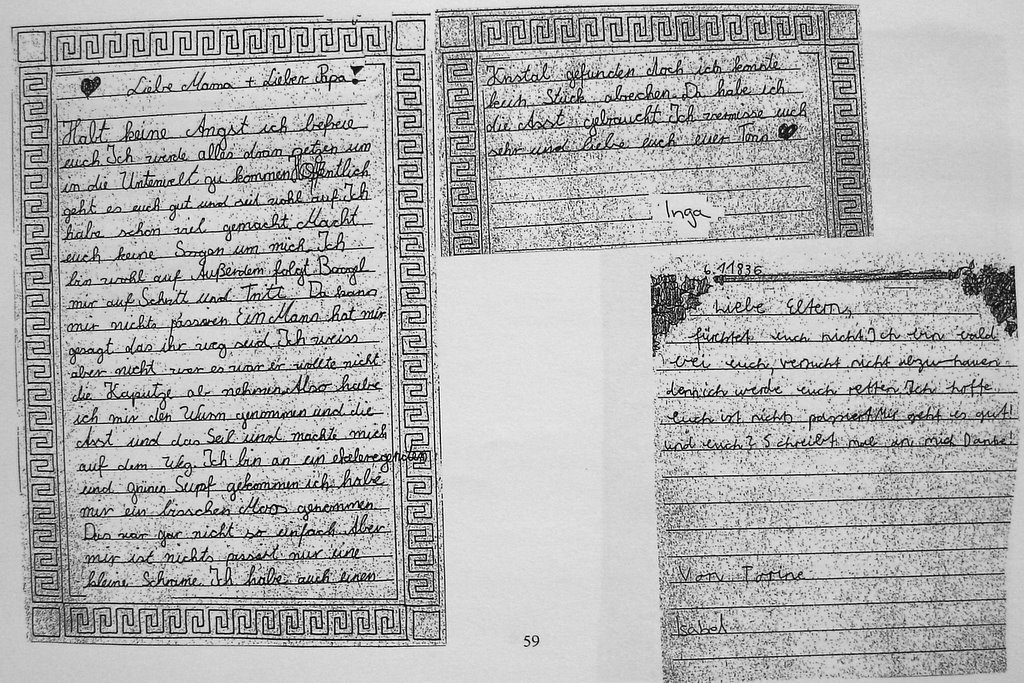 Liebe Mama + Lieber Papa!
Halt keine Angst ich befreie
euch Ich werde alles dran setzen um
in die Unterwelt zu kommen Hoffentlich
geht es euch gut und seit wohl auf Ich
habe schon viel gemacht. Macht
euch keine Sorgen um mich. Ich
bin wohl auf Außerdem folgt
mir auf Schritt und Tritt. Da kann
mir nichts passieren Ein Mann hat mir
gesagt das ihr weg seid Ich weiss
aber nicht wer es war er wollte nicht
die Kaputze ab nehmen. Also habe
ich mir den Wurm genommen und die
Axt und das Seil und machte mich
auf dem Weg. Ich bin an ein
und grünen Supf gekommen ich habe
mir ein bisschen Moos genommen
Das war gar nicht so einfach Aber
mir ist nichts passiert nur eine
kleine Schrame Ich habe auch einen
Kristal gefunden doch ich konnte
kein Stück abrechen. Da habe ich
die Axt gebraucht Ich vermisse euch
sehr und liebe euch euer Torin
Inga
6.11836
Liebe Eltern,
fürchtet euch nicht. Ich bin bald
bei euch, versucht nicht abzuhauen
denn ich werde euch retten. Ich hoffe
euch ist nichts passiert. Mir geht es gut!
und euch? Schreibt mal an mich Danke!
Von Torine
Isabel
59